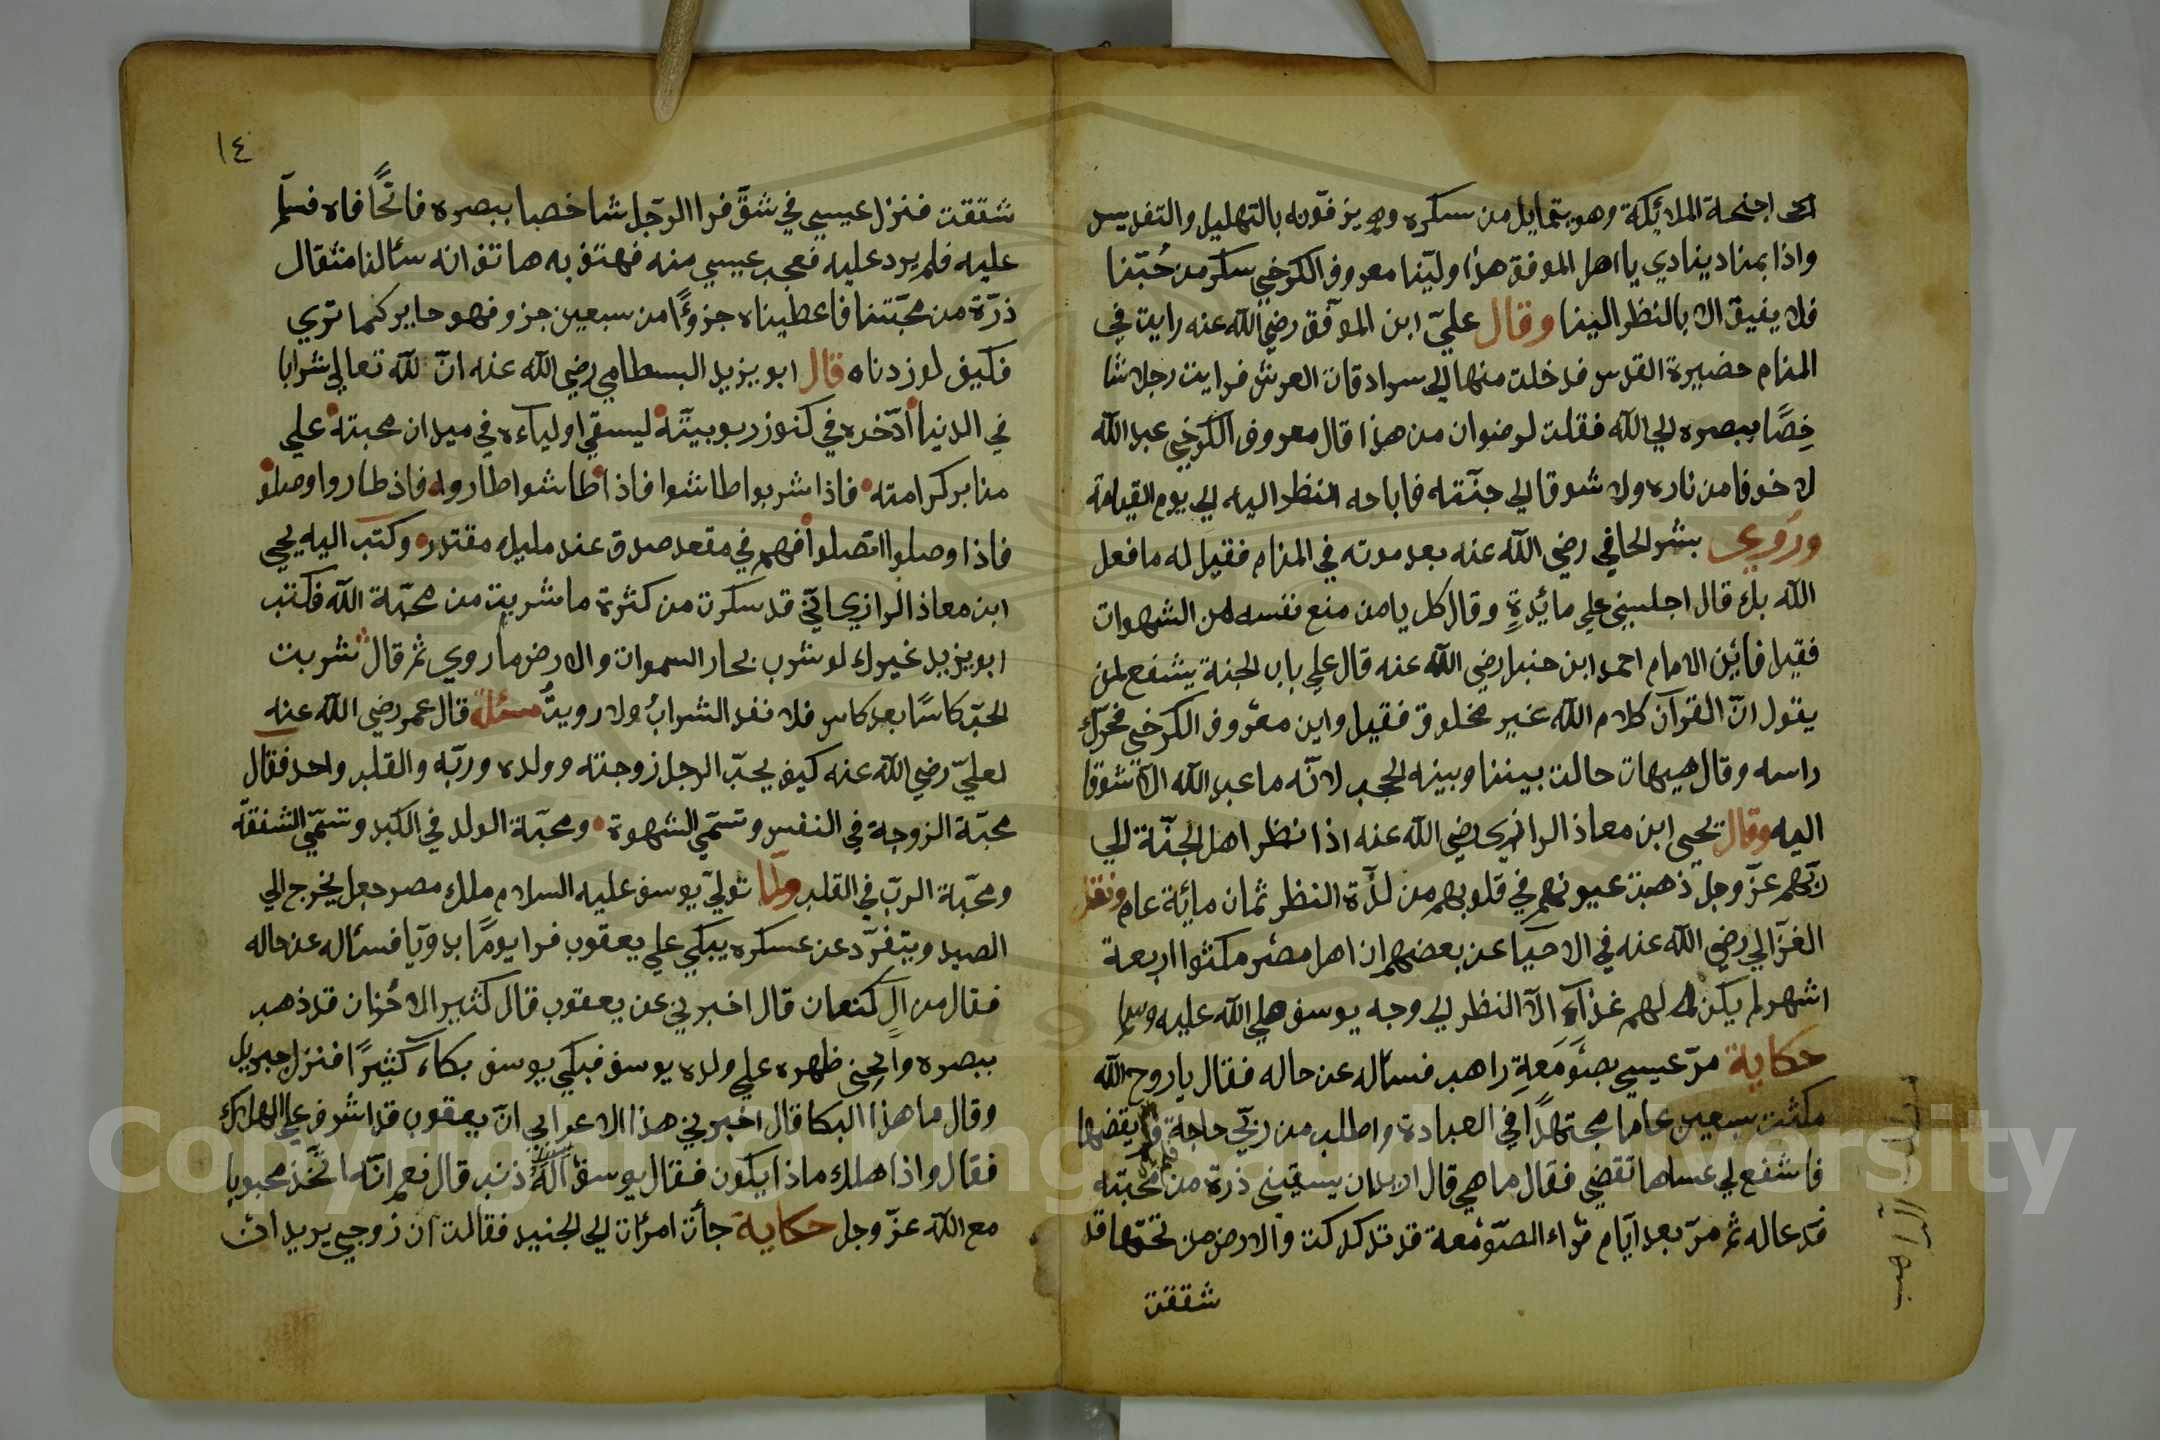 اجنحة الملائكة وهو يتمايل من سكره وهم يزفونه بالتهليل والتقديس
واذا بمناد ينادي يا اهل الموقف هذا وليّنا معروف الكرخي سكر من حُبّنا
فلا يفيق الا بالنظر الينا وقال عليّ ابن الموفّق رضي الله عنه رايت في
المنام حضيرة القدس فدخلت منها الى سرادقات العرش فرايت رجلا شا
خِصًا ببصره الى الله فقلت لرضوان من هذا قال معروف الكرخي عبد الله
لا خوفا من ناره ولا شوقا الى جنّته فاباحه النظر اليه الى يوم القيامة
وروي بشر الحافي رضي الله عنه بعد موته في المنام فقيل له ما فعل
الله بك قال اجلسني على مائدةٍ وقال كل يا من منع نفسه من الشهوات
فقيل فائين الامام احمد ابن حنبل رضي الله عنه قال على باب الجنة يشفع لمن
يقول انّ القرآن كلام الله غير مخلوق فقيل واين معروف الكرخي فحرّك
راسه وقال هيهات حالت بيننا وبينه الحجب لانّه ما عبد الله الّا شوقا
اليه وقال يحيى ابن معاذ الرازي رضي الله عنه اذا نظر اهل الجنّة الى
ربّهم عزّ وجل ذهبت عيونهم في قلوبهم من لذّة النظر ثمان مائة عام ونقل
الغزّالي رضي الله عنه في الاحيا عن بعضهم ان اهل مصر مكثوا اربعة
اشهر لم يكن لهم غذآء الّا النظر الى وجه يوسف صلى الله عليه وسلم
حكاية مرّ عيسى بصَومَعةِ راهب فساله عن حاله فقال يا روح الله
مكثت سبعين عاما مجتهدًا في العبادة واطلب من ربّي حاجة ولم يقضها
فاشفع لي عساها تقضى فقال ما هي قال ان يسقيني ذرة من محبته
فدعا له ثم مرّ بعد ايّام فراء الصّومعة قد تدكدكت والارض من تحتها قد
شققت
١٤
شققت فنزل عيسى في شقّ فرا الرّجل شاخصا ببصره فاتحًا فاه فسلّم
عليه فلم يرد عليه فعجب عيسى منه فهتف به هاتف انه سألنا مثقال
ذرّة من محبّتنا فاعطيناه جزوًا من سبعين جزو فهو حاير كما ترى
فكيف لو زدناه قال ابو يزيد البسطامي رضي الله عنه انّ لله تعالى شرابا
في الدنيا ادّخره في كنوز ربوبيّته ليسقي اولياءه في ميدان محبته على
منابر كرامته فاذا شربوا طاشوا فاذا طاشوا طاروا فاذ طاروا وصلو
فاذا وصلوا اتصلوا فهم في مقعد صدق عند مليك مقتدر وكتب اليه يحيى
ابن معاذ الرازي انّي قد سكرت من كثرة ما شربت من محبّة الله فكتب
ابو يزيد غيرك لو شرب بحار السموات والارض ما روي ثم قال شربت
الحبّ كاسًا بعد كاس فلا نفد الشرابُ ولا رويتُ مسئلة قال عمر رضي الله عنه
لعليّ رضي الله عنه كيف يحبّ الرجل زوجته وولده وربّه والقلب واحد فقال
محبّة الزوجة في النفس وتسمّى الشهوة ومحبّة الولد في الكبد وتسمّى الشفقة
ومحبّة الربّ في القلب ولمّا تولّى يوسف عليه السلام ملك مصر جعل يخرج الى
الصيد ويتفرّد عن عسكره يبكي على يعقوب فرا يومًا بدويّا فسئاله عن حاله
فقال من ال كنعان قال اخبرني عن يعقوب قال كثير الاحزان قد ذهب
ببصره وانحنى ظهره على ولده يوسف فبكى يوسف بكاء كثيرًا فنزل جبريل
وقال ما هذا البكا قال اخبرني هذا الاعرابي انّ يعقوب قد اشرف على الهلاك
فقال واذا هلك ماذا يكون فقال يوسف اَلَهُ ذنب قال نعم انّه اتّخذ محبوبا
مع الله عزّ وجل حكاية جأت امرئات الى الجنيد فقالت ان زوجي يريد ان
Copyright © King Saud University